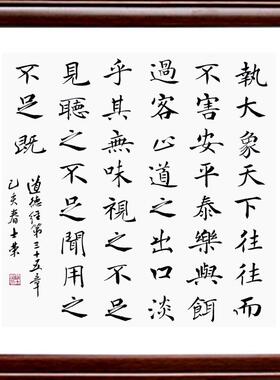 執大象天下往往而
不害安平泰樂與餌
過客止道之出口淡
乎其無味視之不足
見聽之不足聞用之
不足既
道德经第三十五章
亥春士荣